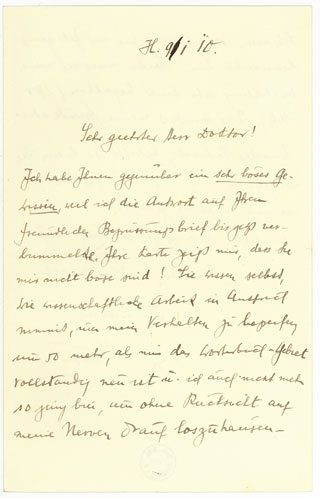 H. 9/I 10.
Sehr geehrter Herr Doktor!
Ich habe Ihnen gegenüber ein sehr böses Ge-
wissen, weil ich die Antwort auf Ihren
freundlichen Begrüssungsbrief bis jetzt ver-
bummelte. Ihre Karte zeigt mir, dass Sie
mir nicht böse sind! Sie wissen selbst,
wie wissenschaftliche Arbeit in Anspruch
nimmt, um mein Verhalten zu begreifen
um so mehr, als mir das Wörterbuch-Gebiet
vollständig neu ist u. ich auch nicht mehr
so jung bin, um ohne Rücksicht auf
meine Nerven drauf loszuhausen—